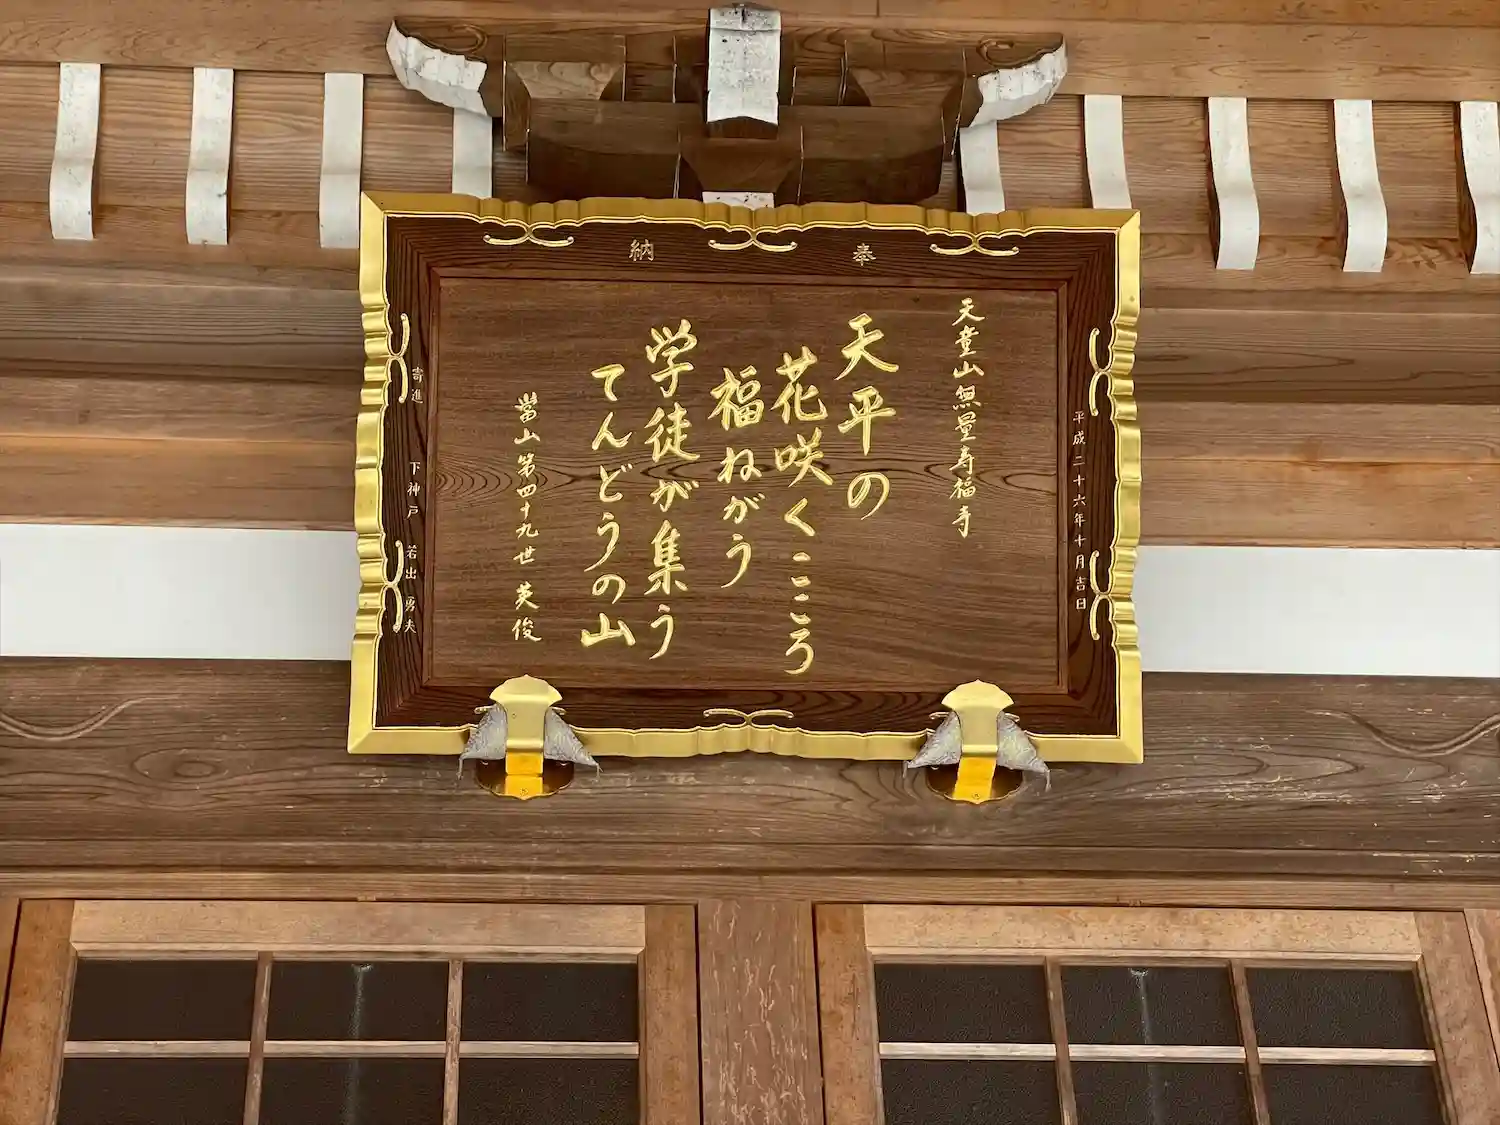 奉納
平成二十六年十月吉日
天童山無量寿福寺
天平の
花咲くこころ
福ねがう
学徒が集う
てんどうの山
當山第四十九世 英俊
寄進 下神戸 若出 勇夫